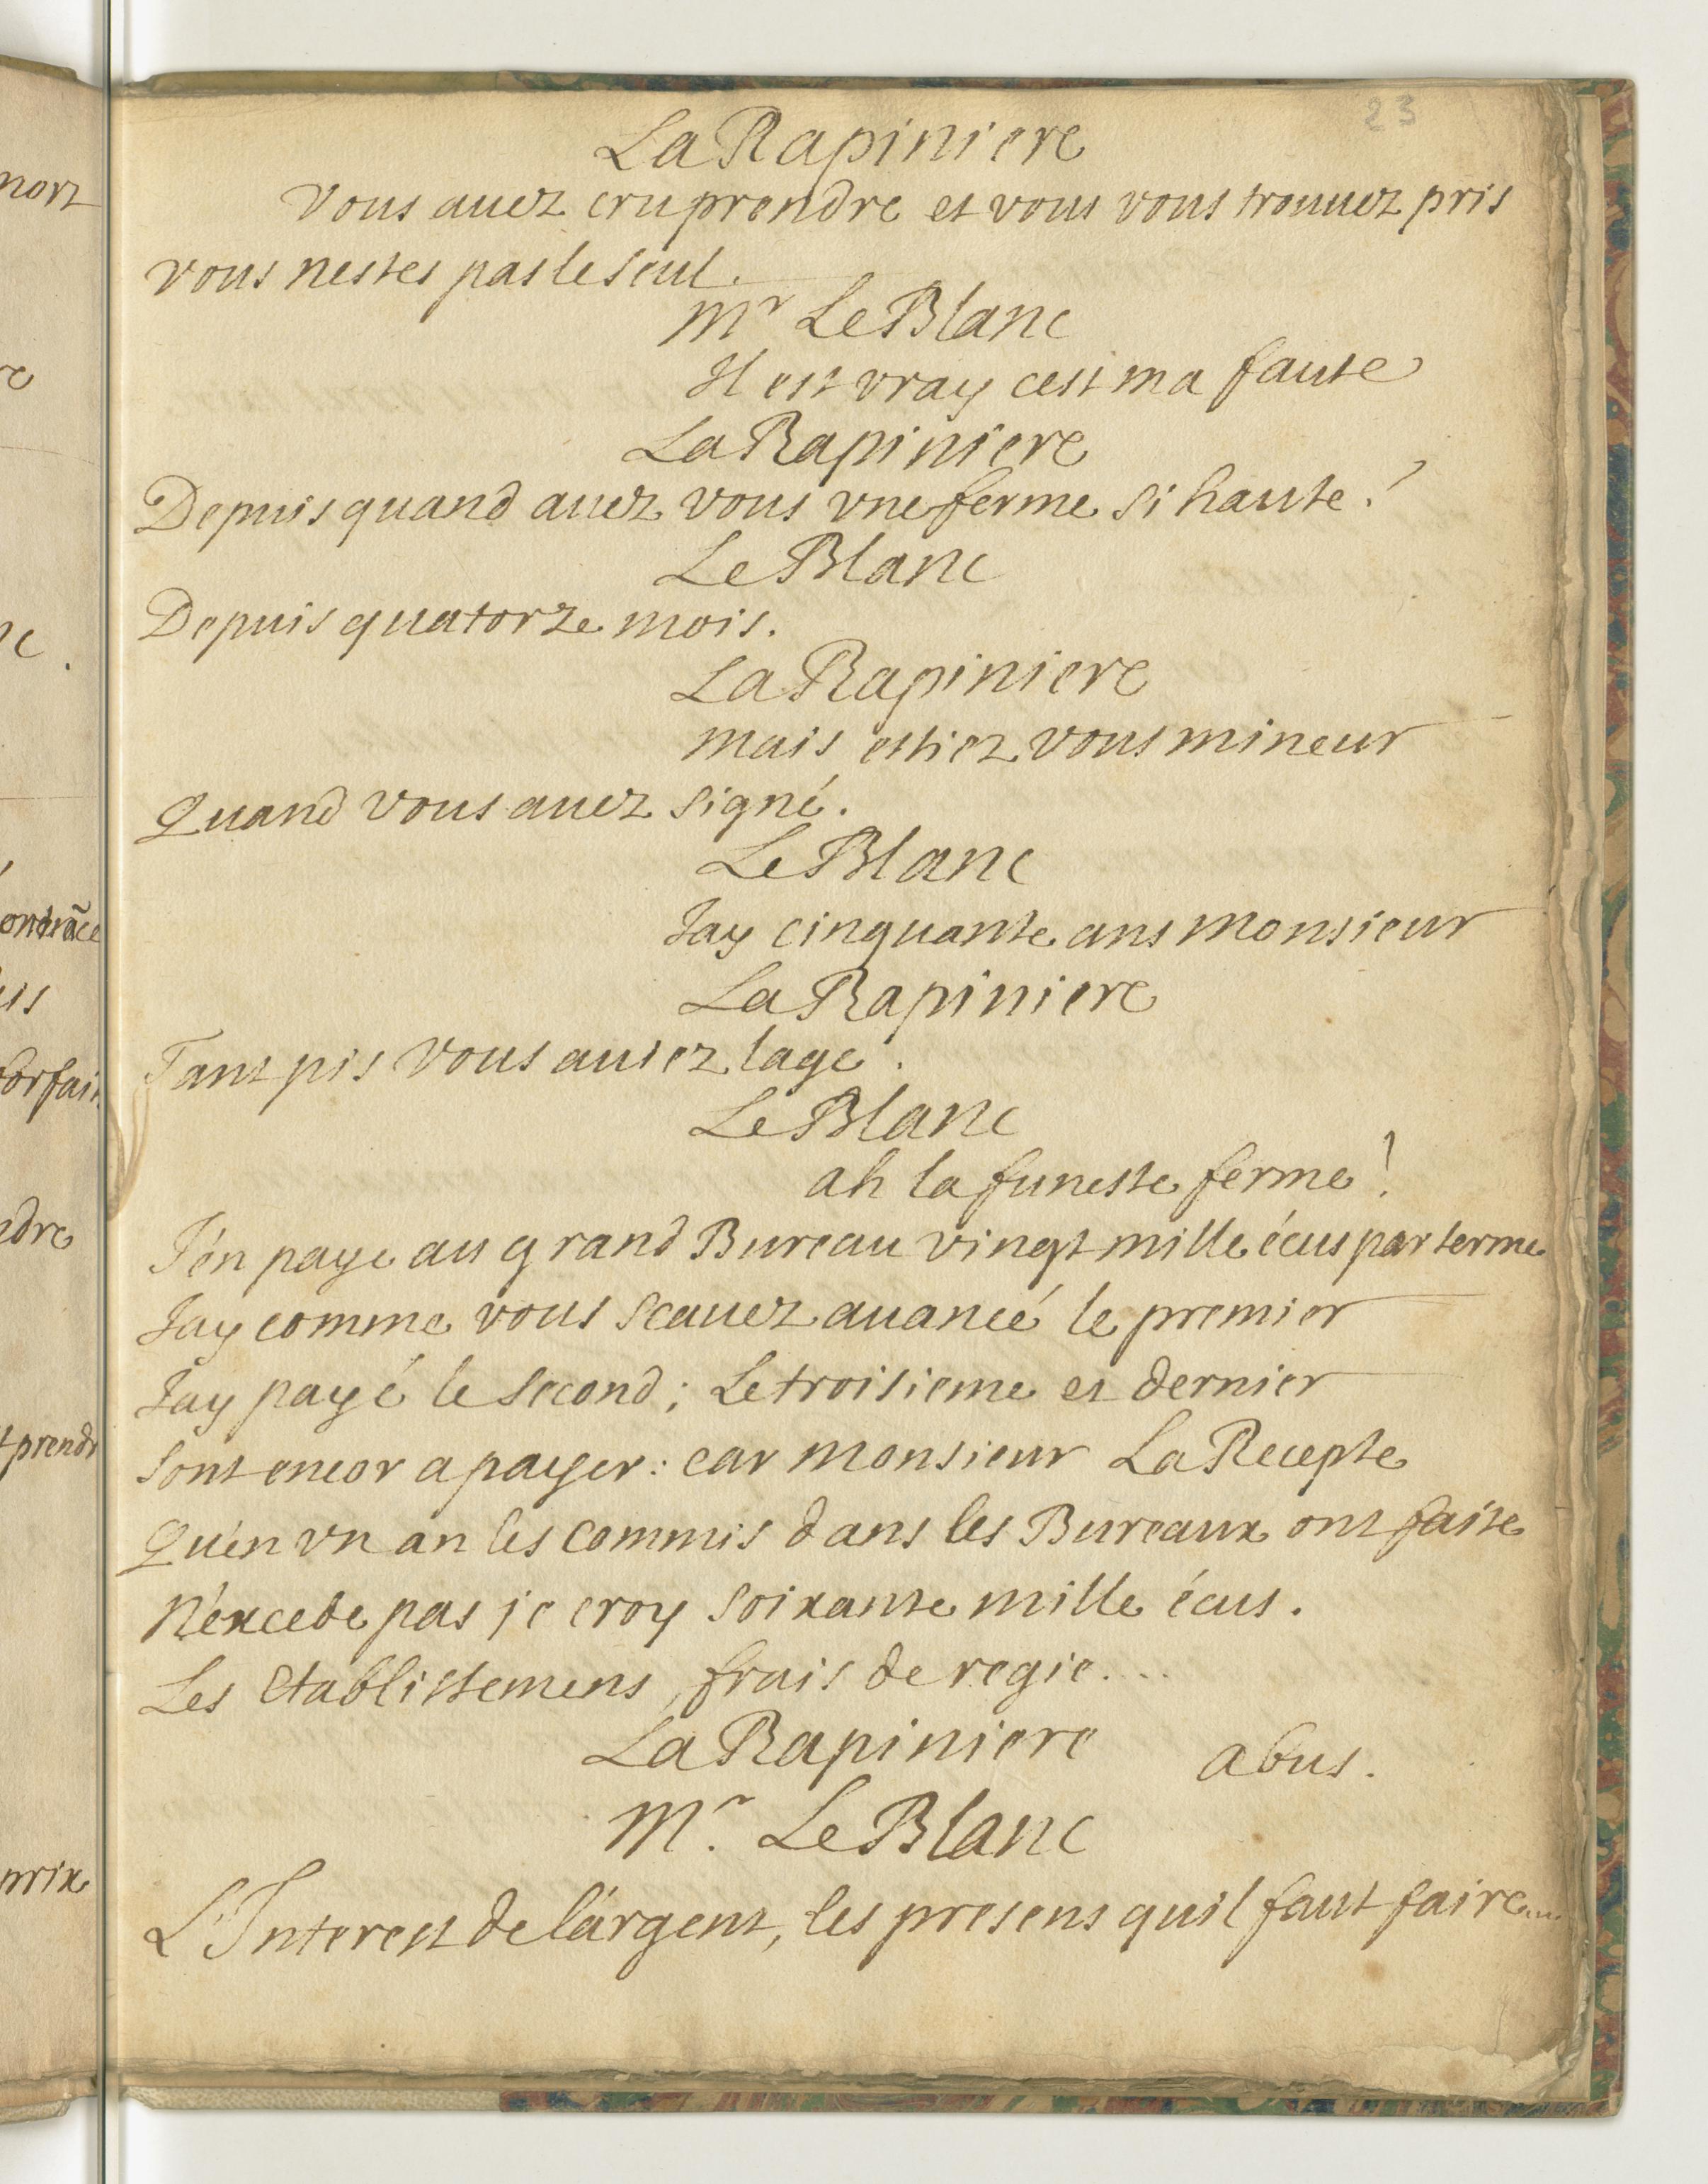 23
La Rapiniere
Vous auez cru prendre et vous vous trouuez pris
vous nestes pas le seul.
Mr Le Blanc
Il est vray cest ma faute
La Rapiniere
Depuis quand auez vous vne ferme si haute?
Le Blanc
Depuis quatorze mois.
La Rapiniere
mais estiez vous mineur
Quand vous auez signé.
Le Blanc
Jay cinquante ans Monsieur
La Rapiniere
Tant pis vous auiez lage.
Le Blanc
ah la funeste ferme!
J'en paye au grand Bureau vingt mille écus par terme
Jay comme vous scauez auancé le premier
Jay payé le second; Le troisieme et dernier
Sont encor a payer: car Monsieur La Recepte
Qu'en vn an les commis dans les Bureaux ont faite
N'excede pas je croy soixante mille écus.
Les etablissemens, frais de regie....
La Rapiniere abus.
Mr. Le Blanc
L'Interest de l'argent, les presens quil faut faire....
nort
re
ne.
is
forfait
ndre
t prendr
prix